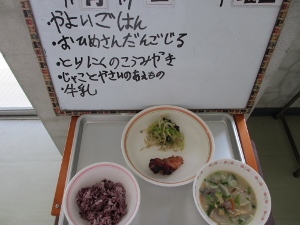 やよいごはん
・おひめさんだんごじる
・とりにくのこうみやき
・じゃことやさいのあえもの
・牛乳